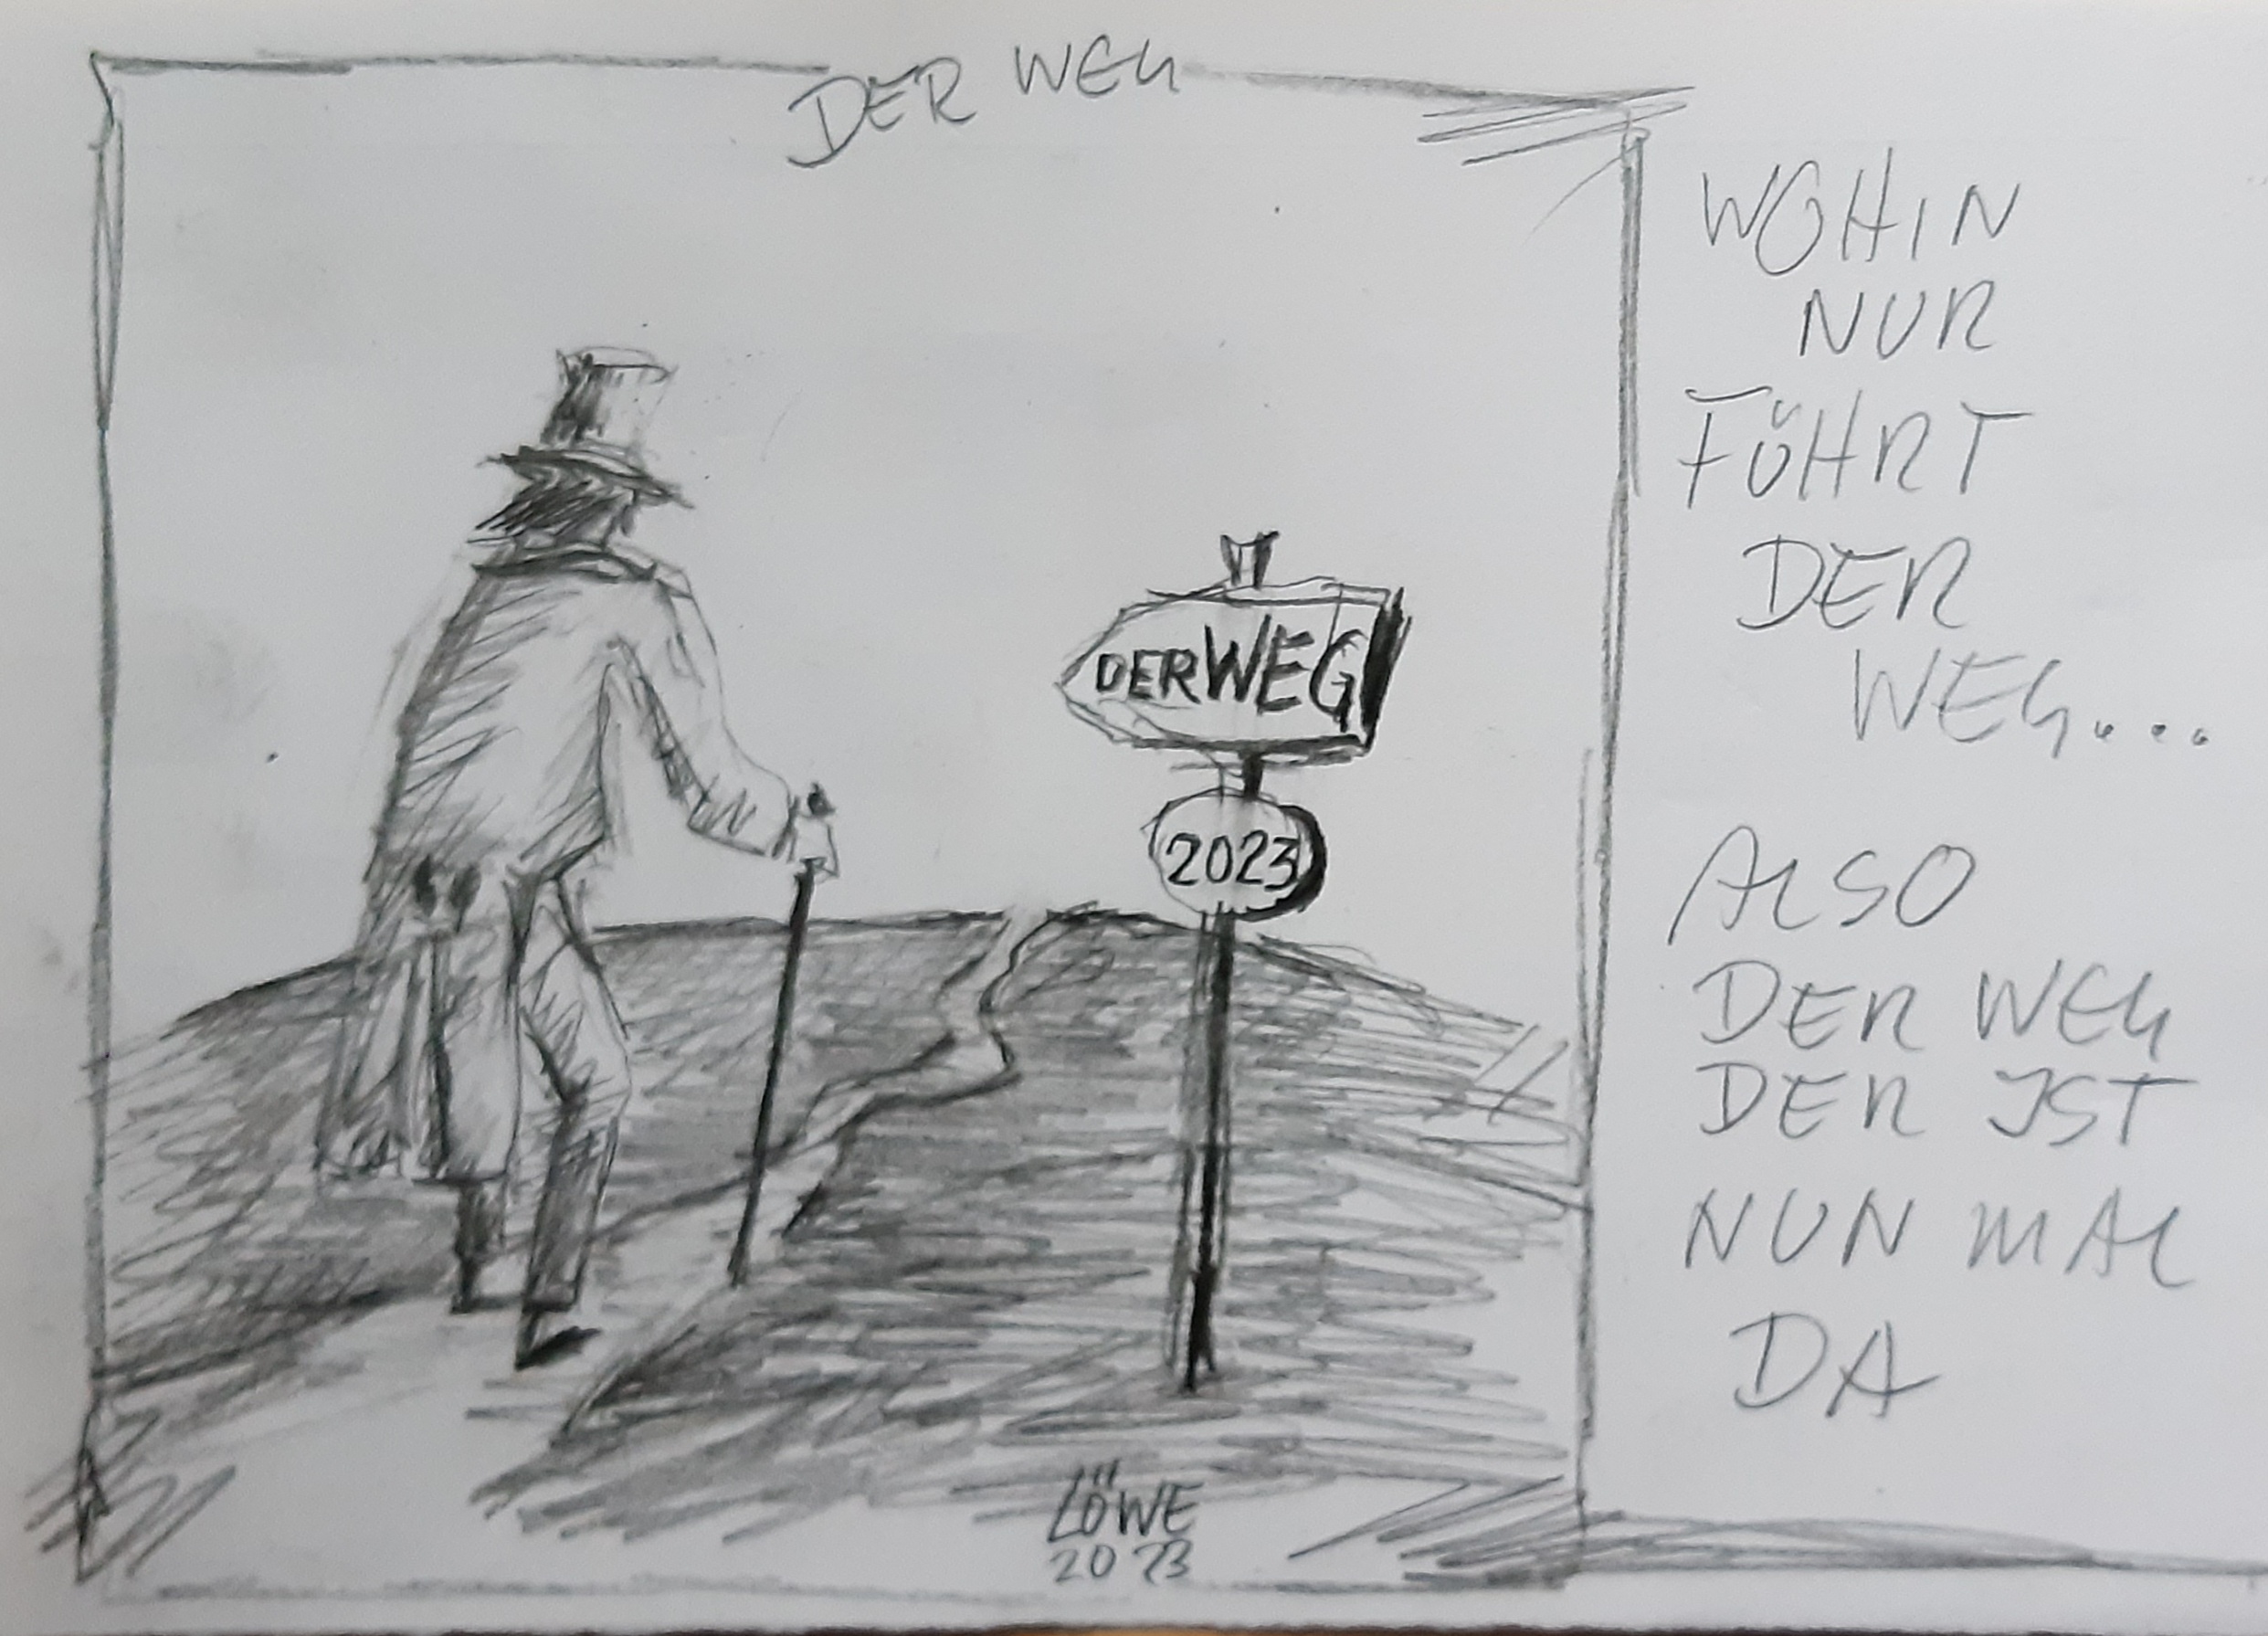 DER WEG
DER WEG
2023
LÖWE
2023
WOHIN
NUR
FÜHRT
DER
WEG....
ALSO
DER WEG
DER IST
NUN MAL
DA